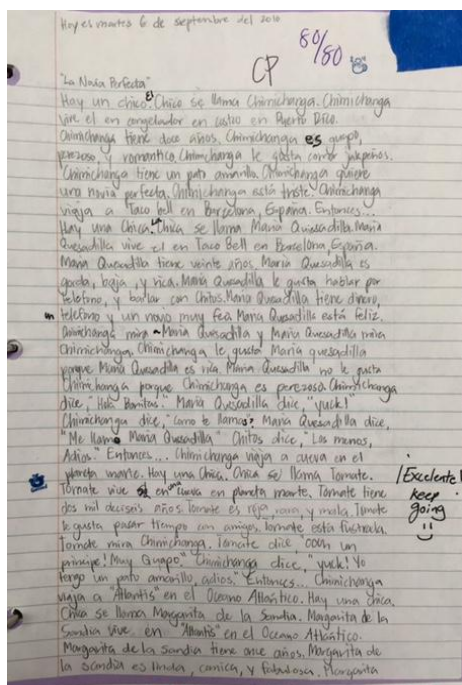 Hoy es martes 6 de septiembre del 2016
80/80
CP
"La Novia Perfecta"
Hay un chico. El Chico se llama Chimichanga. Chimichanga
vive el en congelador en castro en Puerto Rico.
Chimichanga tiene doce años. Chimichanga es guapo,
perezoso, y romantico. Chimichanga le gusta comer jalapeños.
Chimichanga tiene un pato amarillo. Chimichanga quiere
una novia perfecta. Chimichanga está triste. Chimichanga
viaja a Taco bell en Barcelona, España. Entonces...
Hay una Chica. La Chica se llama Maria Quesadilla. Maria
Quesadilla vive el en Taco Bell en Barcelona, España.
Maria Quesadilla tiene veinte años. Maria Quesadilla es
gorda, baja, y rica. Maria Quesadilla le gusta hablar por
telefono, y bailar con Chitos. Maria Quesadilla tiene dinero,
un telefono y un novio muy fea. Maria Quesadilla está feliz.
Chimichanga mira a Maria Quesadilla y Maria Quesadilla mira
Chimichanga. Chimichanga le gusta Maria quesadilla
porque Maria Quesadilla es rica. Maria Quesadilla no le gusta
Chimichanga porque Chimichanga es perezoso. Chimichanga
dice, "Hola Bonitas." Maria Quesadilla dice, "yuck!"
Chimichanga dice, "Como te llamas?" Maria Quesadilla dice,
"Me llamo Maria Quesadilla." Chitos dice, "Los menos,
Adios." Entonces... Chimichanga viaja a cueva en el
planeta marte. Hay una Chica. Chica se llama Tomate.
Tomate vive en una cueva en planeta marte. Tomate tiene
dos mil dieciseis años. Tomate es roja, rara, y mala. Tomate
le gusta pasar tiempo con amigos. Tomate está fustrada.
Tomate mira Chimichanga. Tomate dice "oooh un
principe! Muy Guapo" Chimichanga dice, "yuck! Yo
tengo un pato amarillo, adios." Entonces... Chimichanga
viaja a "Atlantis" en el Oceano Atlantico. Hay una chica.
Chica se llama Margarita de la Sandia. Margarita de la
Sandia vive en "Atlantis" en el Oceano Atlántico.
Margarita de la sandia tiene once años. Margarita de
la sandia es linda, comica, y fabulosa. Margarita
¡Excelente!
keep
going